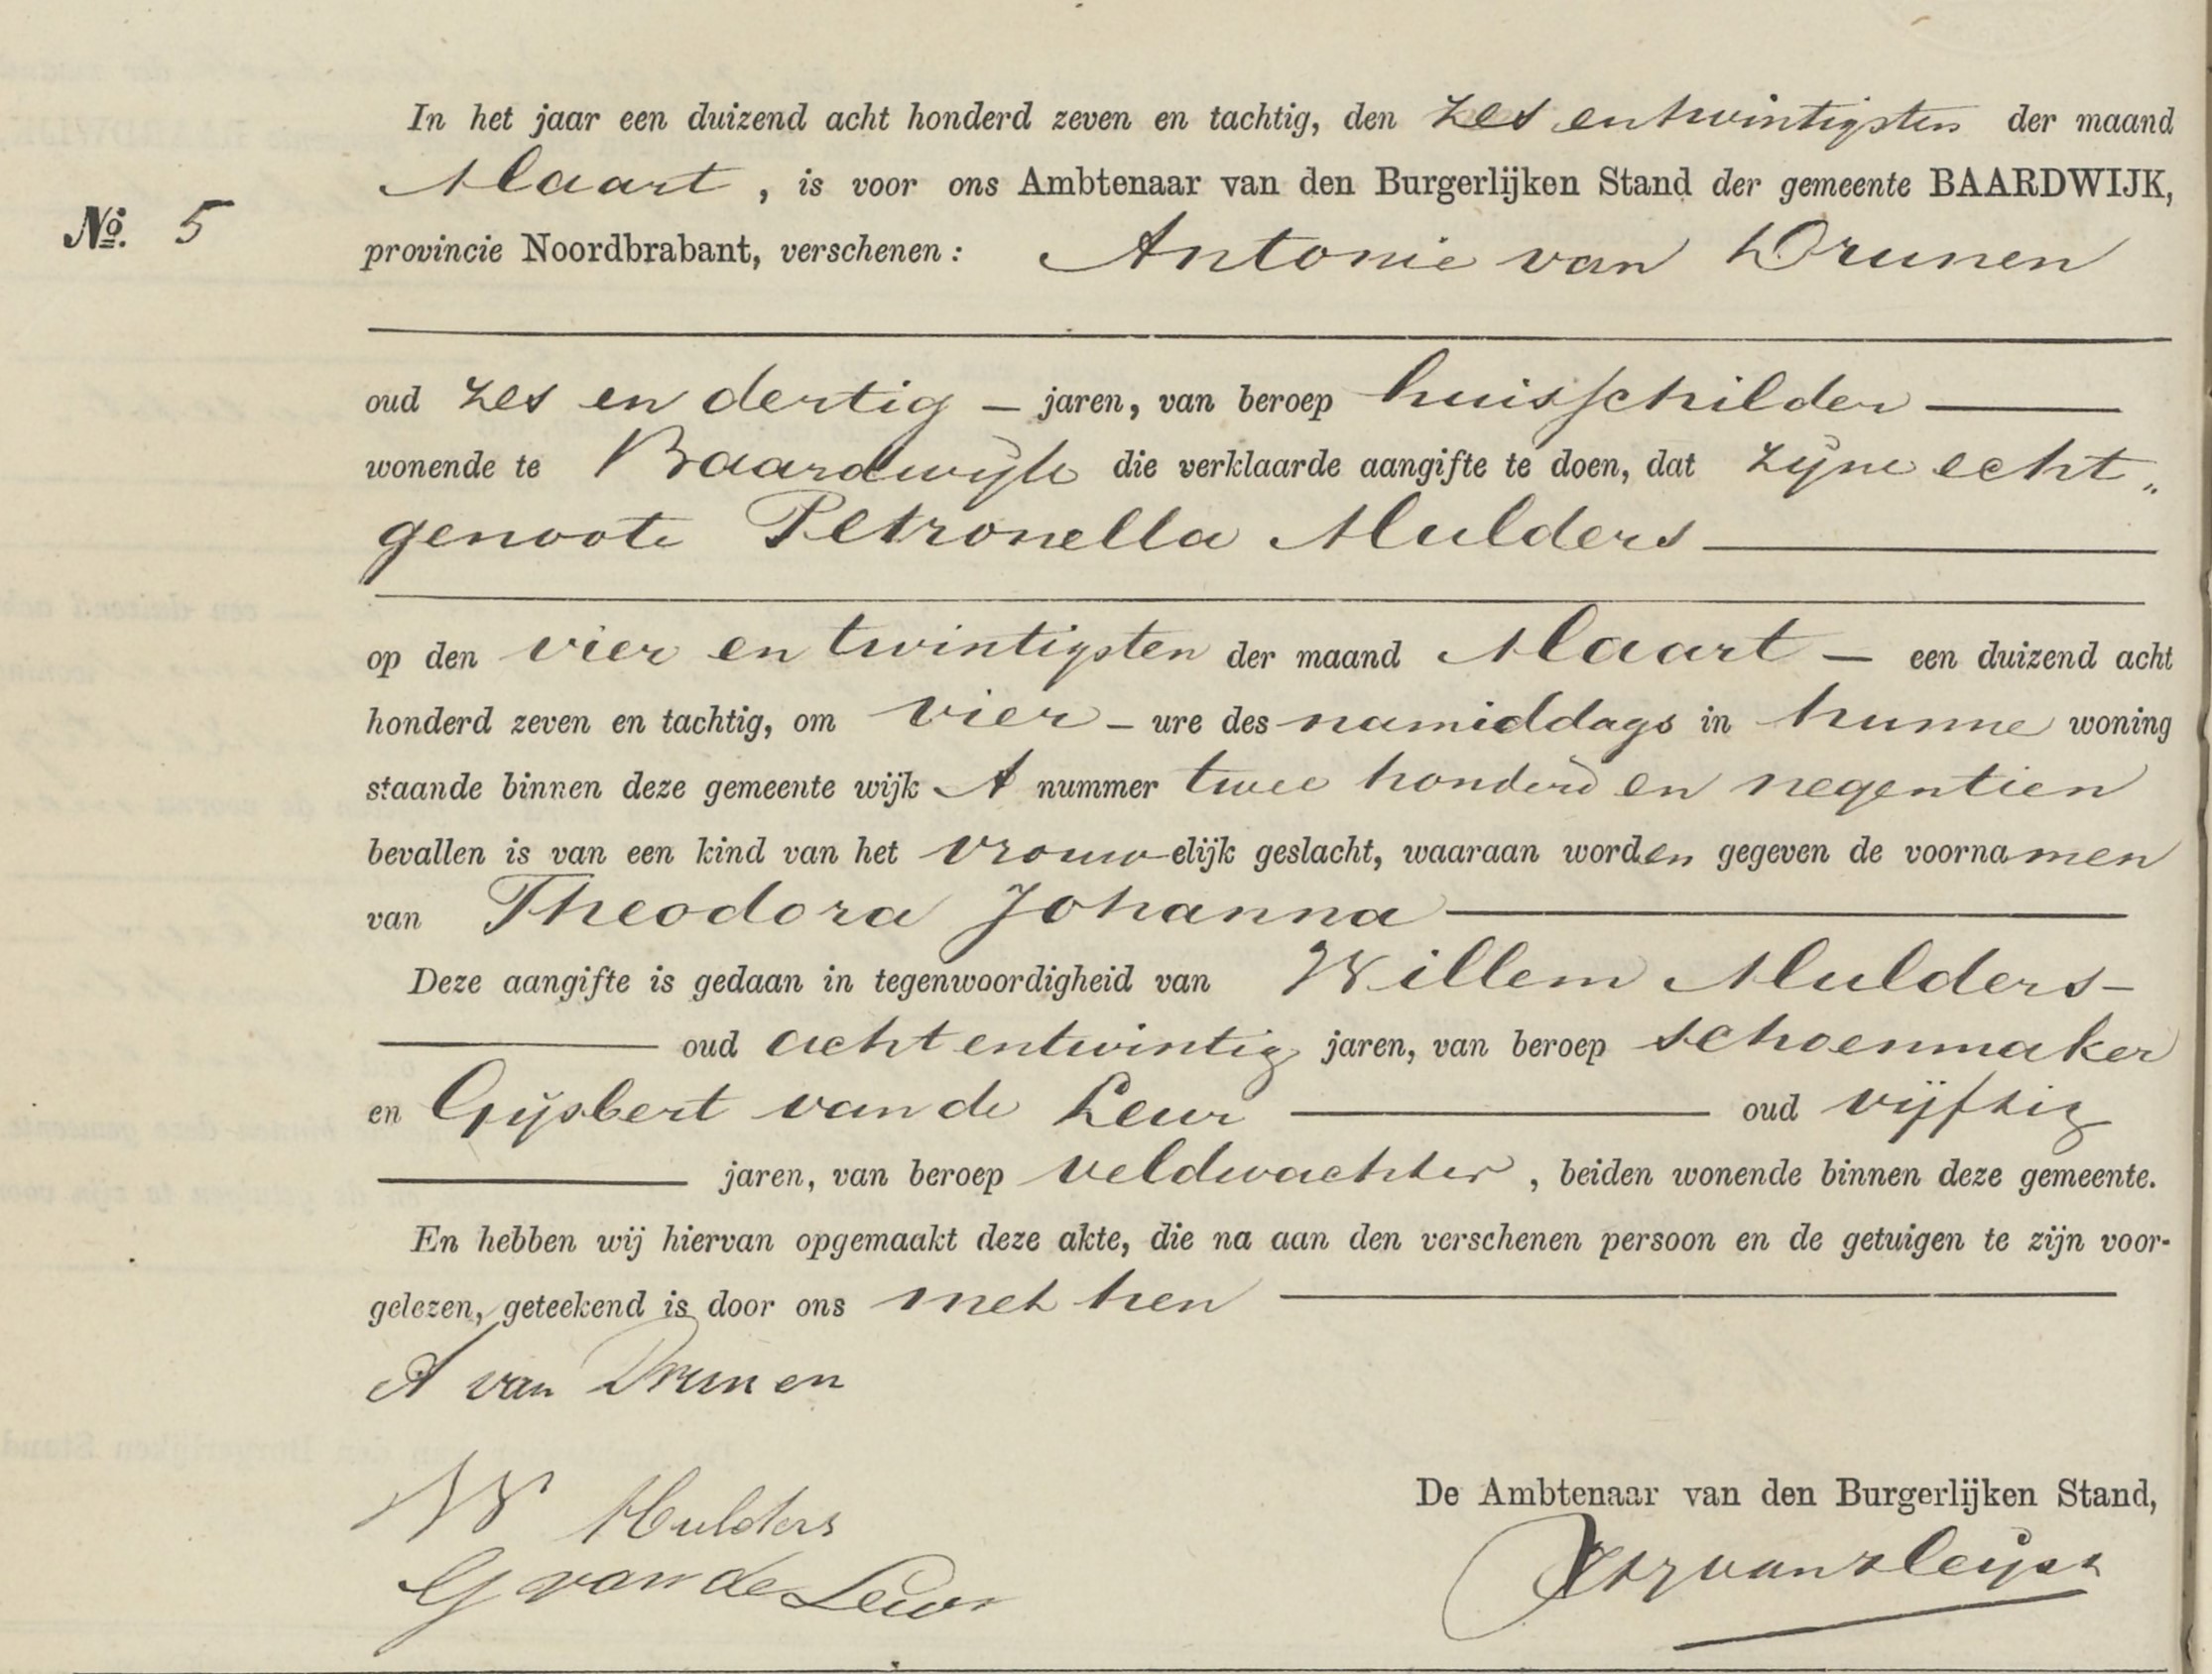 In het jaar een duizend acht honderd zeven en tachtig, den zes entwintigsten der maand
Maart, is voor ons Ambtenaar van den Burgerlijken Stand der gemeente BAARDWIJK,
No. 5
provincie Noordbrabant, verschenen: Antonie van Drunen
oud zes en dertig — jaren, van beroep huisschilder —
wonende te Baardwijk die verklaarde aangifte te doen, dat zijne echt„
genoote Petronella Mulders —
op den vier en twintigsten der maand Maart — een duizend acht
honderd zeven en tachtig, om vier — ure des namiddags in hunne woning
staande binnen deze gemeente wijk A nummer twee honderd en negentien
bevallen is van een kind van het vrouwelijk geslacht, waaraan worden gegeven de voornamen
van Theodora Johanna —
Deze aangifte is gedaan in tegenwoordigheid van Willem Mulders —
— oud acht entwintig jaren, van beroep schoenmaker
en Gijsbert van de Leur — oud vijftig
— jaren, van beroep veldwachter, beiden wonende binnen deze gemeente.
En hebben wij hiervan opgemaakt deze akte, die na aan den verschenen persoon en de getuigen te zijn voor-
gelezen, geteekend is door ons met hen —
A van Drunen
W Mulders
G van de Leur
De Ambtenaar van den Burgerlijken Stand,